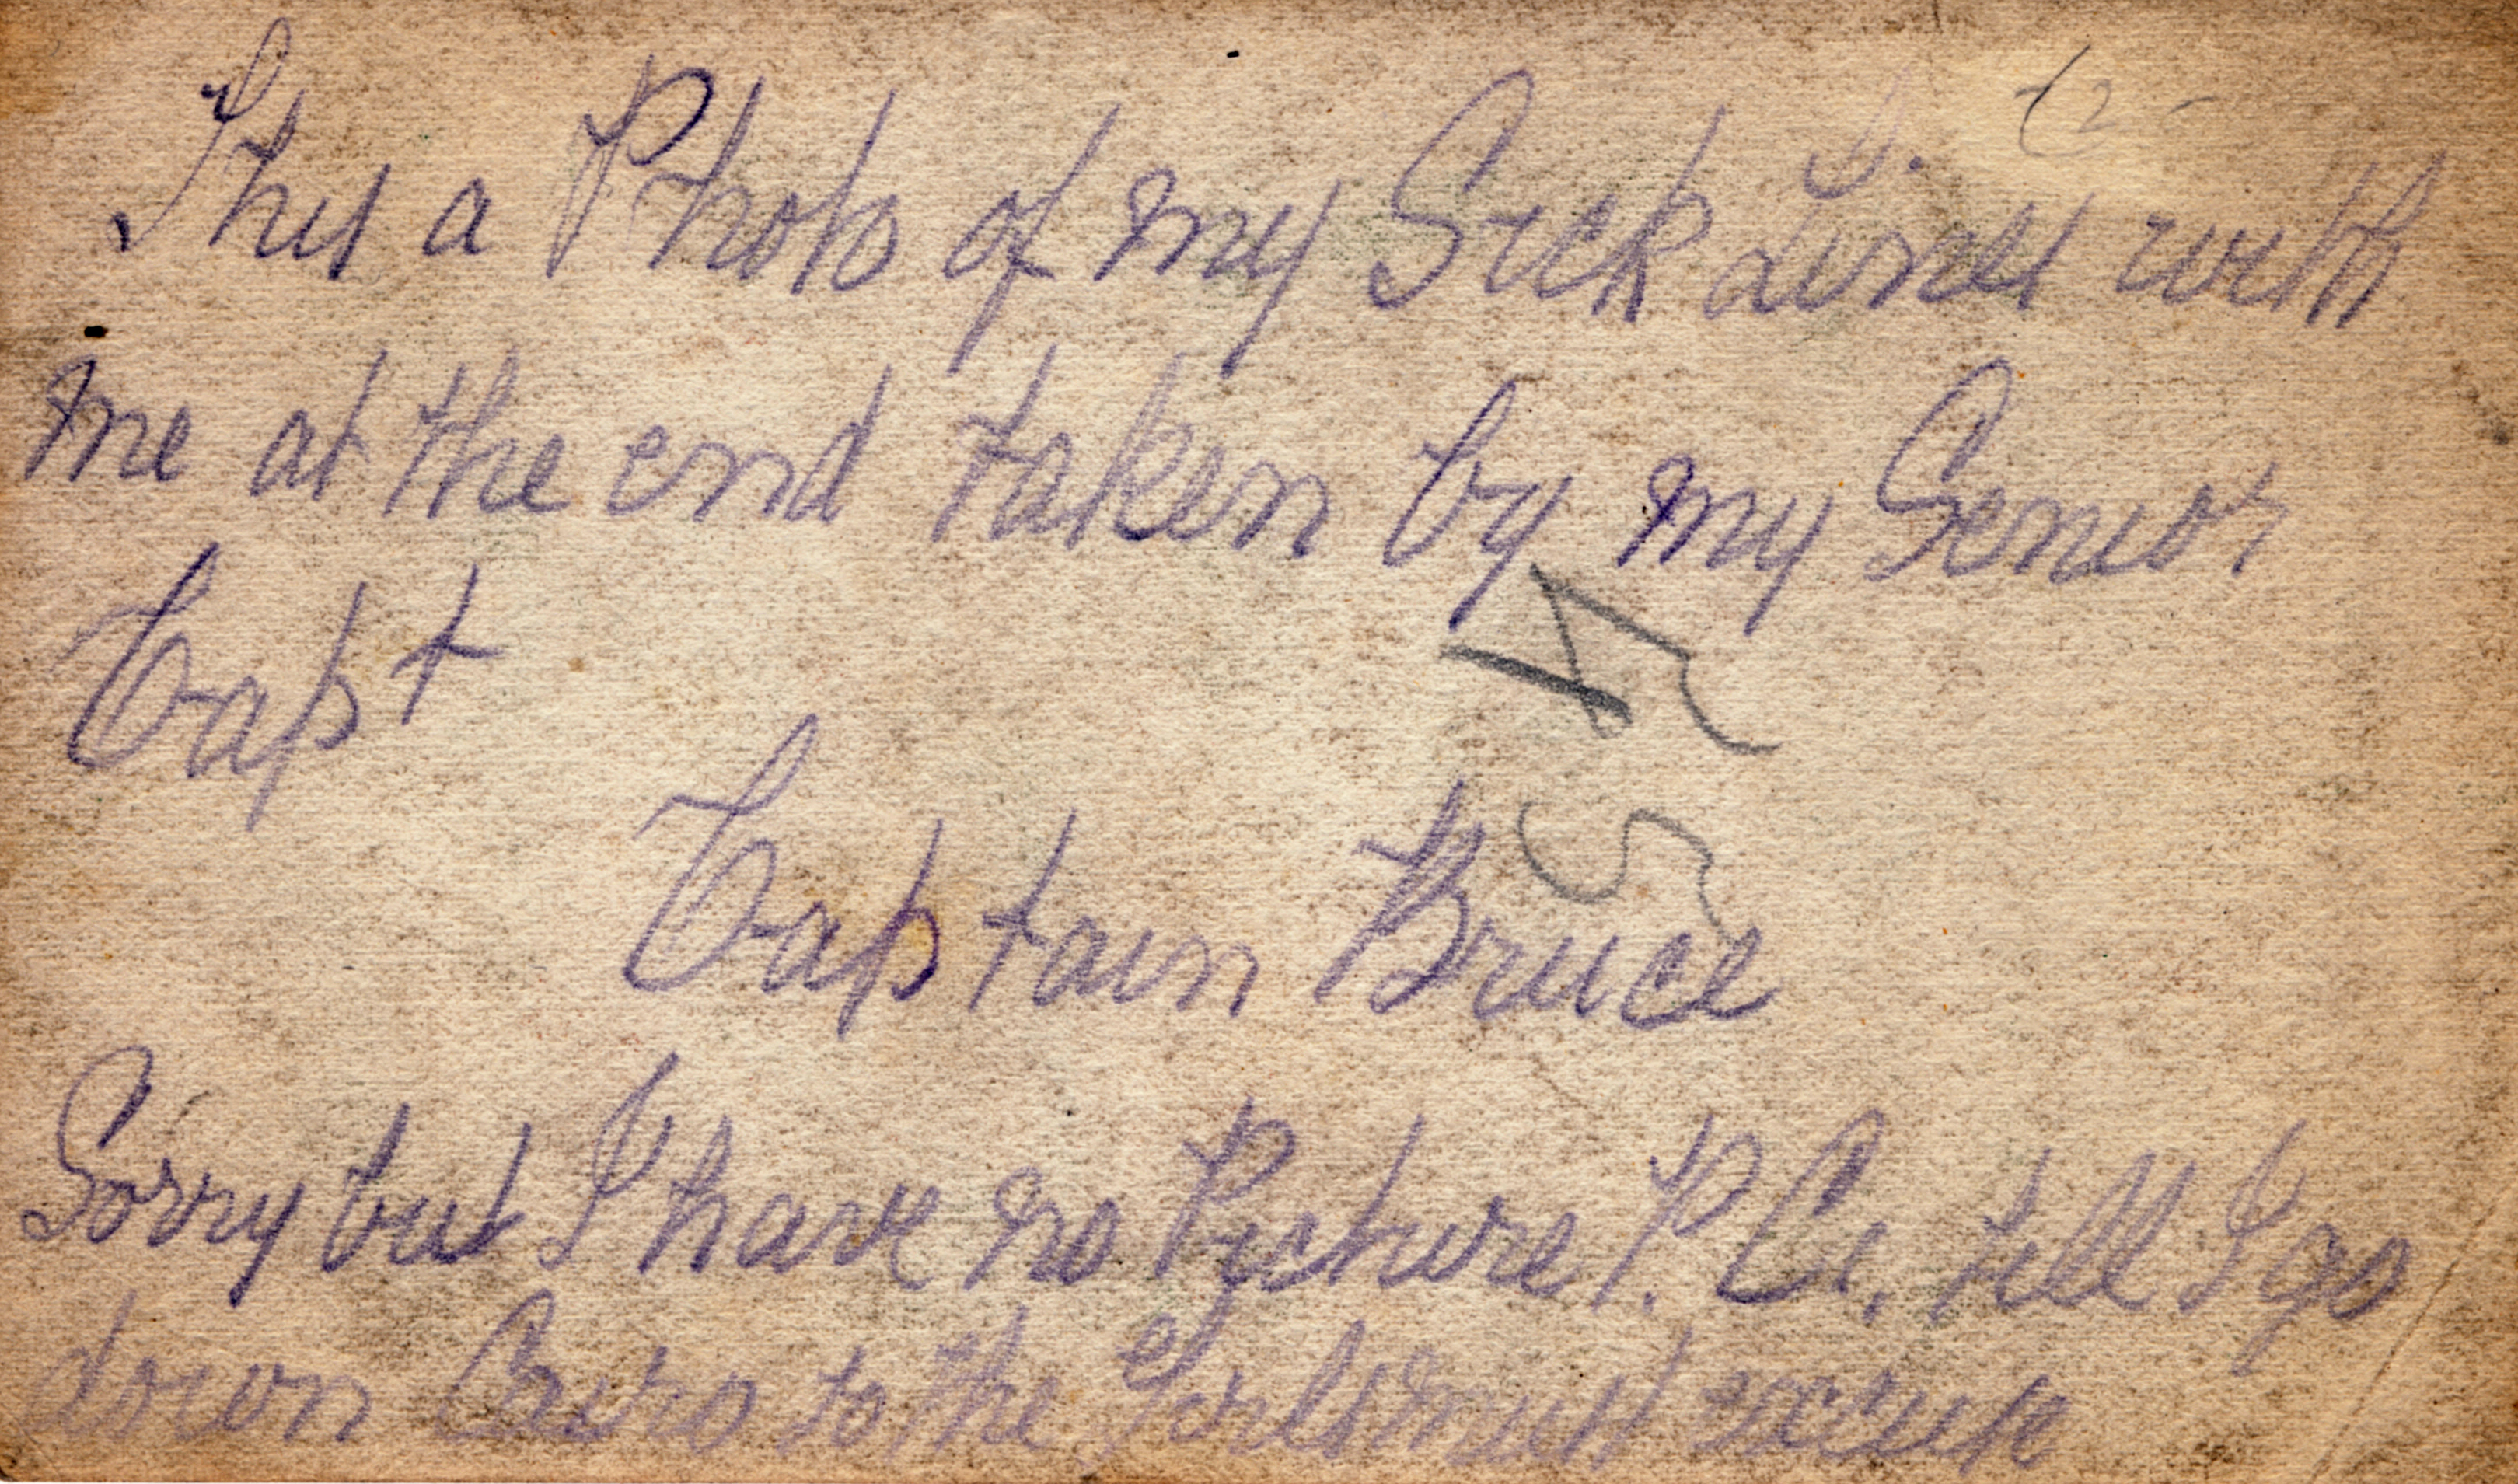 This a Photo of my Sick Lines with
me at the end taken by my Senior
Capt
Captain Bruce
Sorry but I have no Picture P. C. till I go
down Cairo so the Girls must excuse